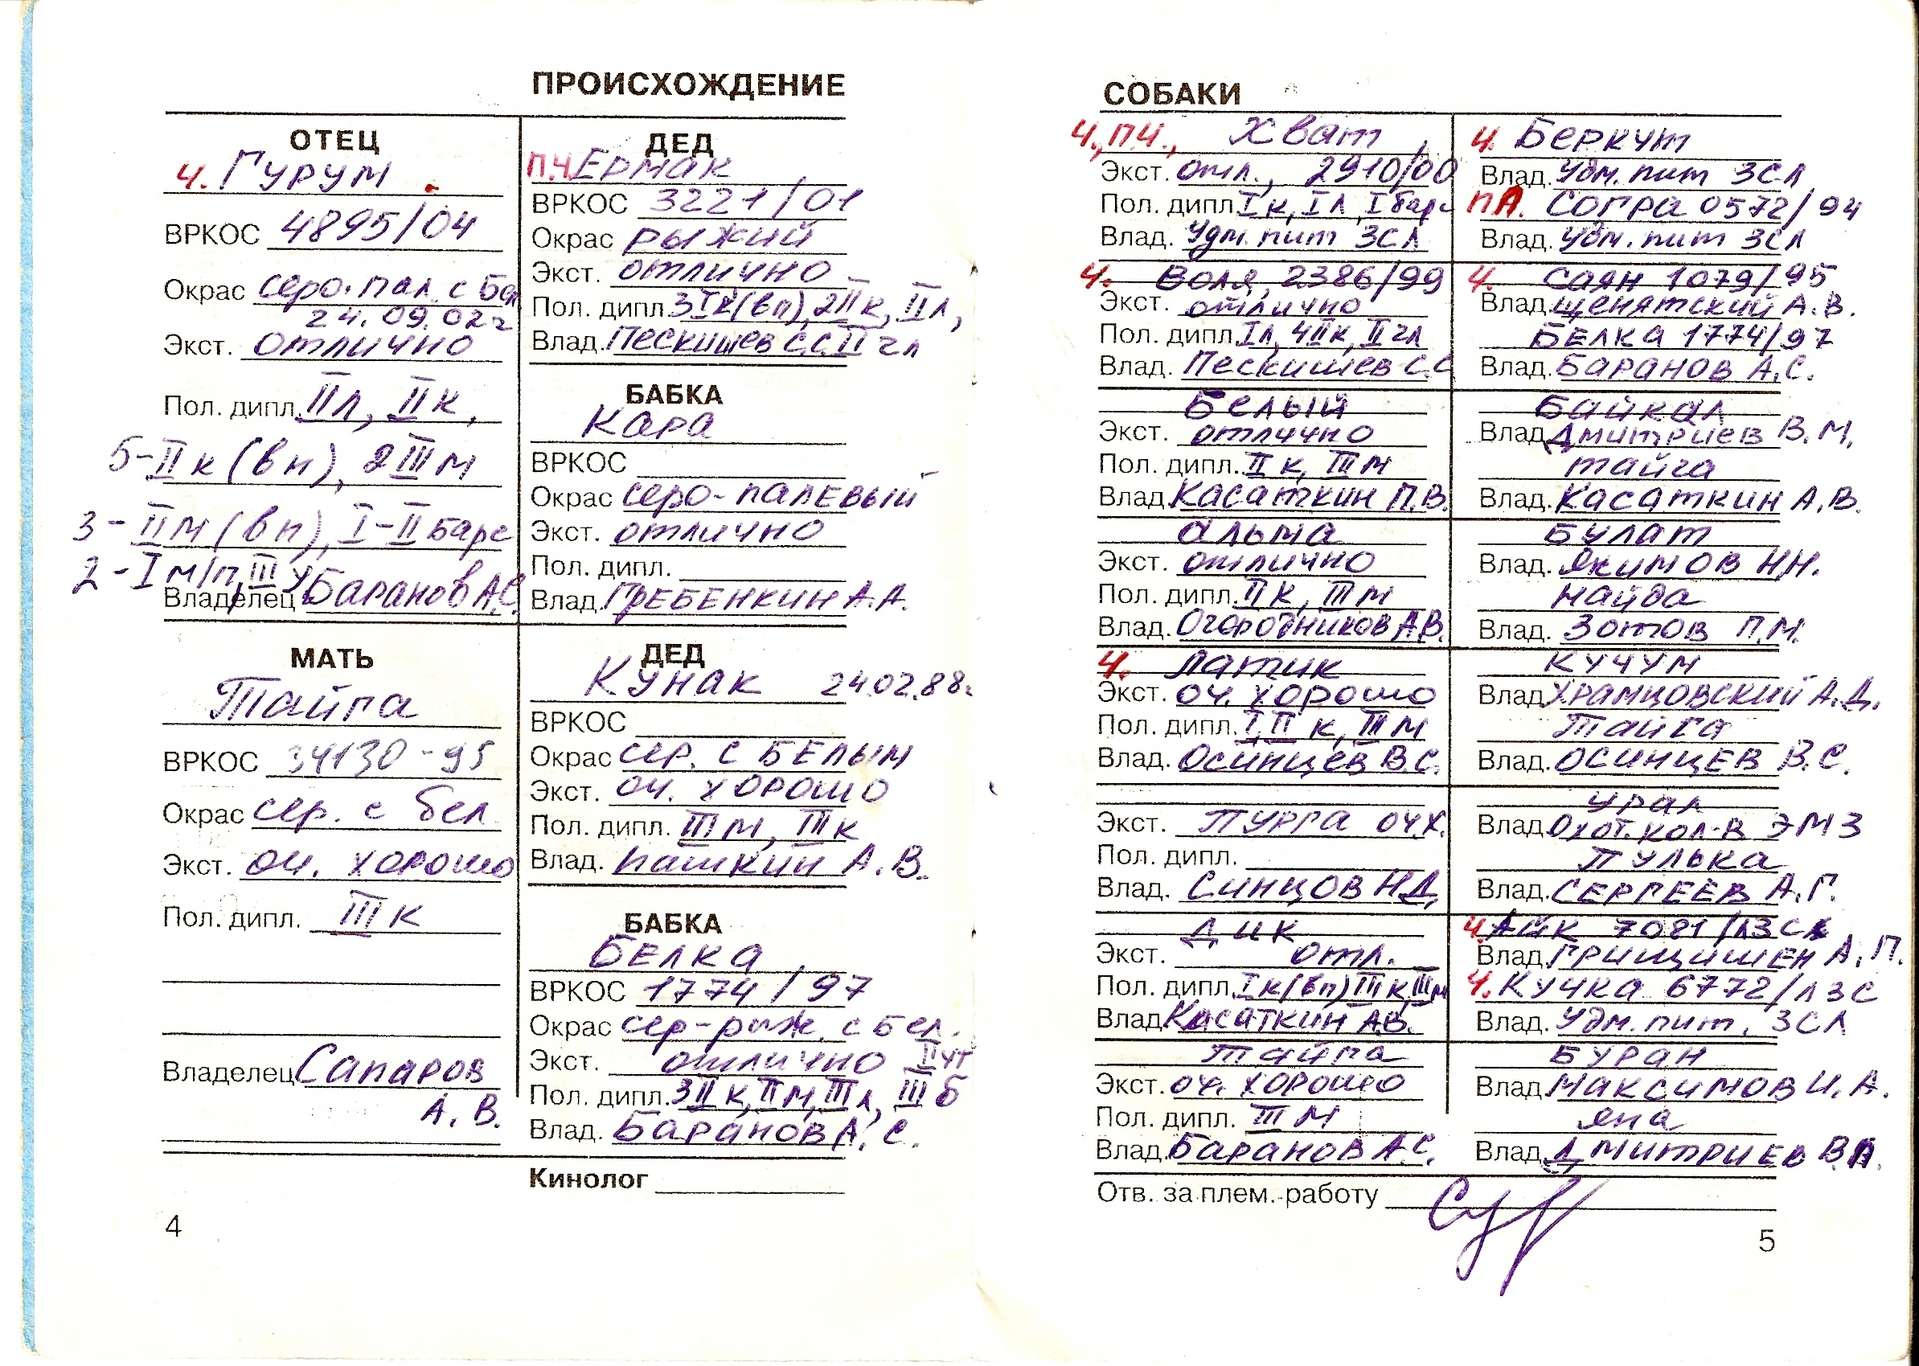 ПРОИСХОЖДЕНИЕ
ОТЕЦ
Ч. Гурум
ВРКОС 4895/04
Окрас серо-пал. с бел
24.09.02г
Экст. отлично
Пол. дипл. IIл, IIк,
5-IIк (вп), 2IIIм
3-IIм (вп), I-II барс
2-Iм/п, III
Владелец Баранов А.С.
МАТЬ
Тайга
ВРКОС 34130-95
Окрас сер. с бел
Экст. оч. хорошо
Пол. дипл. IIIк
Владелец Сапаров
А.В.
ДЕД
П.Ч. Ермак
ВРКОС 3221/01
Окрас рыжий
Экст. отлично
Пол. дипл. 3Iк(вп), 2IIк, IIл,
Влад. Пескишев С.С. IIгл
БАБКА
Кара
ВРКОС
Окрас серо-палевый
Экст. отлично
Пол. дипл.
Влад. Гребенкин А.А.
ДЕД
Кунак 24.02.88г
ВРКОС
Окрас сер. с белым
Экст. оч. хорошо
Пол. дипл. IIIм, IIIк
Влад. Пашкин А.В.
БАБКА
Белка
ВРКОС 1774/97
Окрас сер-рыж. с бел.
Экст. отлично
Пол. дипл. 3IIк, IIм, IIIл, III б
Влад. Баранов А.С.
Кинолог
4
СОБАКИ
Ч., П.Ч., Хват
Экст. отл., 2910/00
Пол. дипл. Iк, Iл, I барс
Влад. Удм. пит ЗСЛ
Ч. Воля, 2386/99
Экст. отлично
Пол. дипл. Iл, 4IIк, IIгл
Влад. Пескишев С.С
Белый
Экст. отлично
Пол. дипл. IIк, IIIм
Влад. Касаткин П.В.
Альма
Экст. отлично
Пол. дипл. IIк, IIIм
Влад. Огородников А.В.
Ч. Латик
Экст. оч. хорошо
Пол. дипл. I, II к, IIIм
Влад. Осинцев В.С.
Экст. Пурга оч.х.
Пол. дипл.
Влад. Синцов Н.Д.
Дик
Экст. отл.
Пол. дипл. Iк(вп) IIIк, IIIм
Влад. Касаткин А.В.
Тайга
Экст. оч. хорошо
Пол. дипл. III м
Влад. Баранов А.С.
Ч. Беркут
Влад. Удм. пит ЗСЛ
Согра 0572/94
Влад. Удм. пит ЗСЛ
Ч. Саян 1079/95
Влад. Щенятский А.В.
Белка 1774/97
Влад. Баранов А.С.
Байкал
Влад. Дмитриев В.М.
Тайга
Влад. Касаткин А.В.
Булат
Влад. Якимов Н.Н.
Найда
Влад. Зотов П.М.
Кучум
Влад. Храмцовский А.Д.
Тайга
Влад. Осинцев В.С.
Урал
Влад. Охот. кол-в ЭМЗ
Пулька
Влад. Сергеев А.Г.
Ч. Айк 7081/лЗСл
Влад. Грищишен А.П.
Ч. Кучка 6772/лЗС
Влад. Удм. пит. ЗСЛ
Буран
Влад. Максимов И.А.
Яна
Влад. Дмитриев
Отв. за плем. работу
5